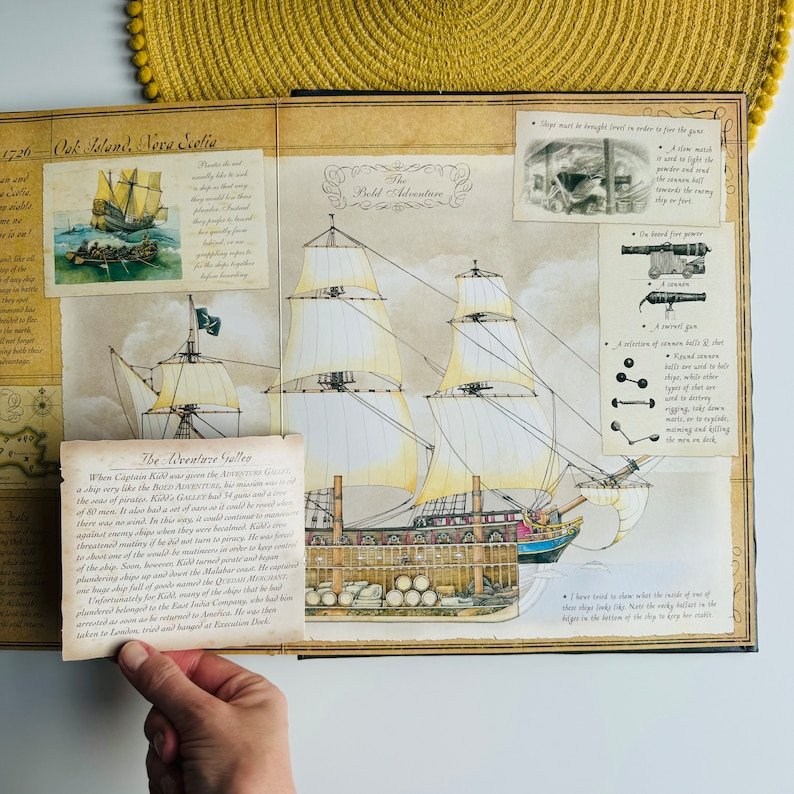 1726
Oak Island, Nova Scotia
Pirates do not
usually like to sink
a ship as that way
they would lose their
plunder. Instead
they prefer to board
her quietly from
behind, or use
grappling ropes to
fix the ships together
before boarding.
The
Bold Adventure
* Ships must be brought level in order to fire the guns.
* A slow match
is used to light the
powder and send
the cannon ball
towards the enemy
ship or fort.
* On board fire power
* A cannon
* A swivel gun
* A selection of cannon balls & shot
* Round cannon
balls are used to hole
ships, while other
types of shot are
used to destroy
rigging, take down
masts, or to explode,
maiming and killing
the men on deck.
and
Scotia,
eight
me no
is on!
like all
top of the
of any ship
in battle
they spot
ammond has
decided to flee.
the north
ill not forget
ring both their
advantage.
Drake
The Adventure Galley
When Captain Kidd was given the ADVENTURE GALLEY,
a ship very like the BOLD ADVENTURE, his mission was to rid
the seas of pirates. Kidd's GALLEY had 34 guns and a crew
of 80 men. It also had a set of oars so it could be rowed when
there was no wind. In this way, it could continue to manoeuvre
against enemy ships when they were becalmed. Kidd's crew
threatened mutiny if he did not turn to piracy. He was forced
to shoot one of the would-be mutineers in order to keep control
of the ship. Soon, however, Kidd turned pirate and began
plundering ships up and down the Malabar coast. He captured
one huge ship full of goods named the QUEDAH MERCHANT.
Unfortunately for Kidd, many of the ships that he had
plundered belonged to the East India Company, who had him
arrested as soon as he returned to America. He was then
taken to London, tried and hanged at Execution Dock.
* I have tried to show what the inside of one of
these ships looks like. Note the rocky ballast in the
bilges in the bottom of the ship to keep her stable.